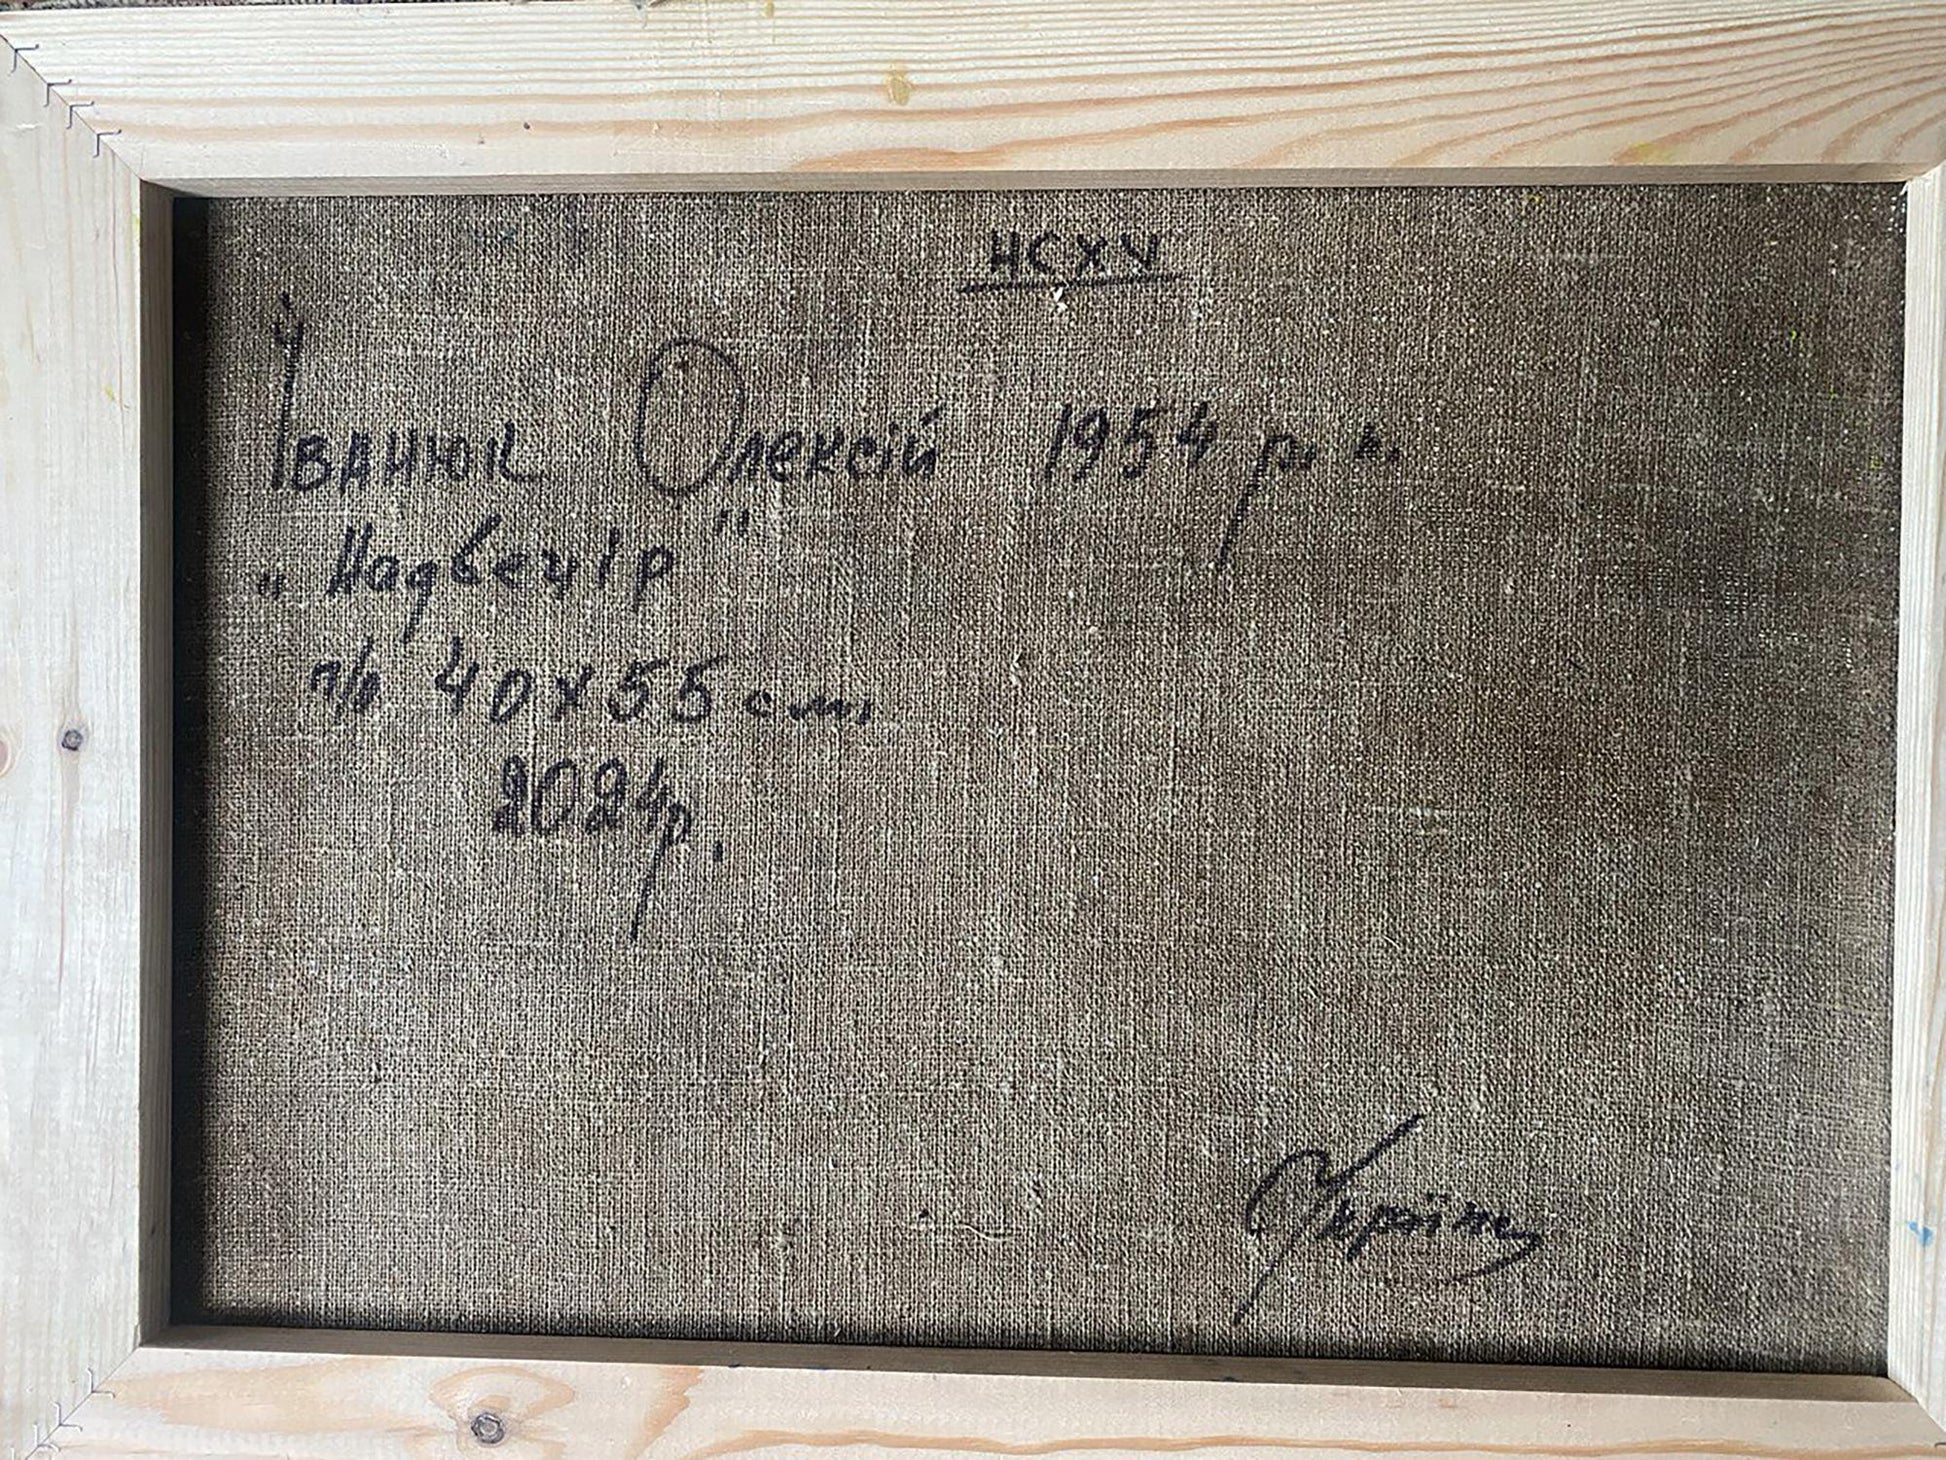 НСХУ
Іванюк Олексій 1954 р. н.
„Надвечір"
п/о 40х55 см.
2024р.